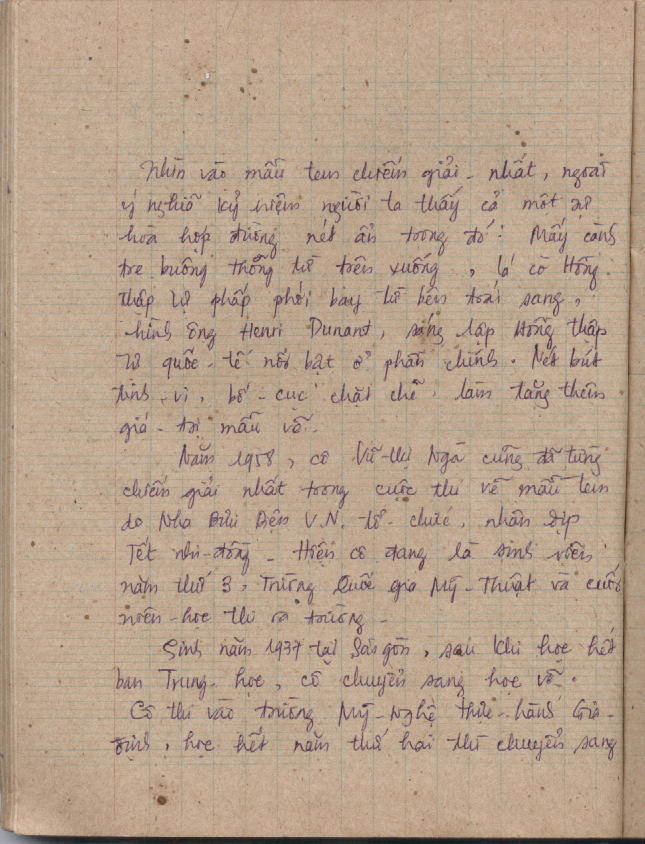 Nhìn vào mẫu tem chiếm giải-nhất, ngoài
ý nghĩa kỷ niệm người ta thấy cả một sự
hoà hợp đường nét ẩn trong đó: Mấy cành
tre buông thõng từ trên xuống, lá cờ Hồng
Thập Tự phấp phới bay từ bên trái sang,
hình ông Henri Dunant, sáng lập Hồng Thập
Tự quốc-tế nổi bật ở phần chính. Nét bút
tinh-vi, bố-cục chặt chẽ, làm tăng thêm
giá-trị mẫu vẽ.
Năm 1958, cô Vũ-thị Ngà cũng đã từng
chiếm giải nhất trong cuộc thi vẽ mẫu tem
do Nha Bưu Điện V.N. tổ-chức, nhân dịp
Tết nhi-đồng - Hiện cô đang là sinh viên
năm thứ 3, Trường Quốc gia Mỹ-Thuật và cuối
niên-học thi ra trường -
Sinh năm 1937 tại Sài gòn, sau khi học hết
ban Trung-học, cô chuyển sang học vẽ.
Cô thi vào trường Mỹ-Nghệ thực-hành Gia-
định, học hết năm thứ hai thì chuyển sang